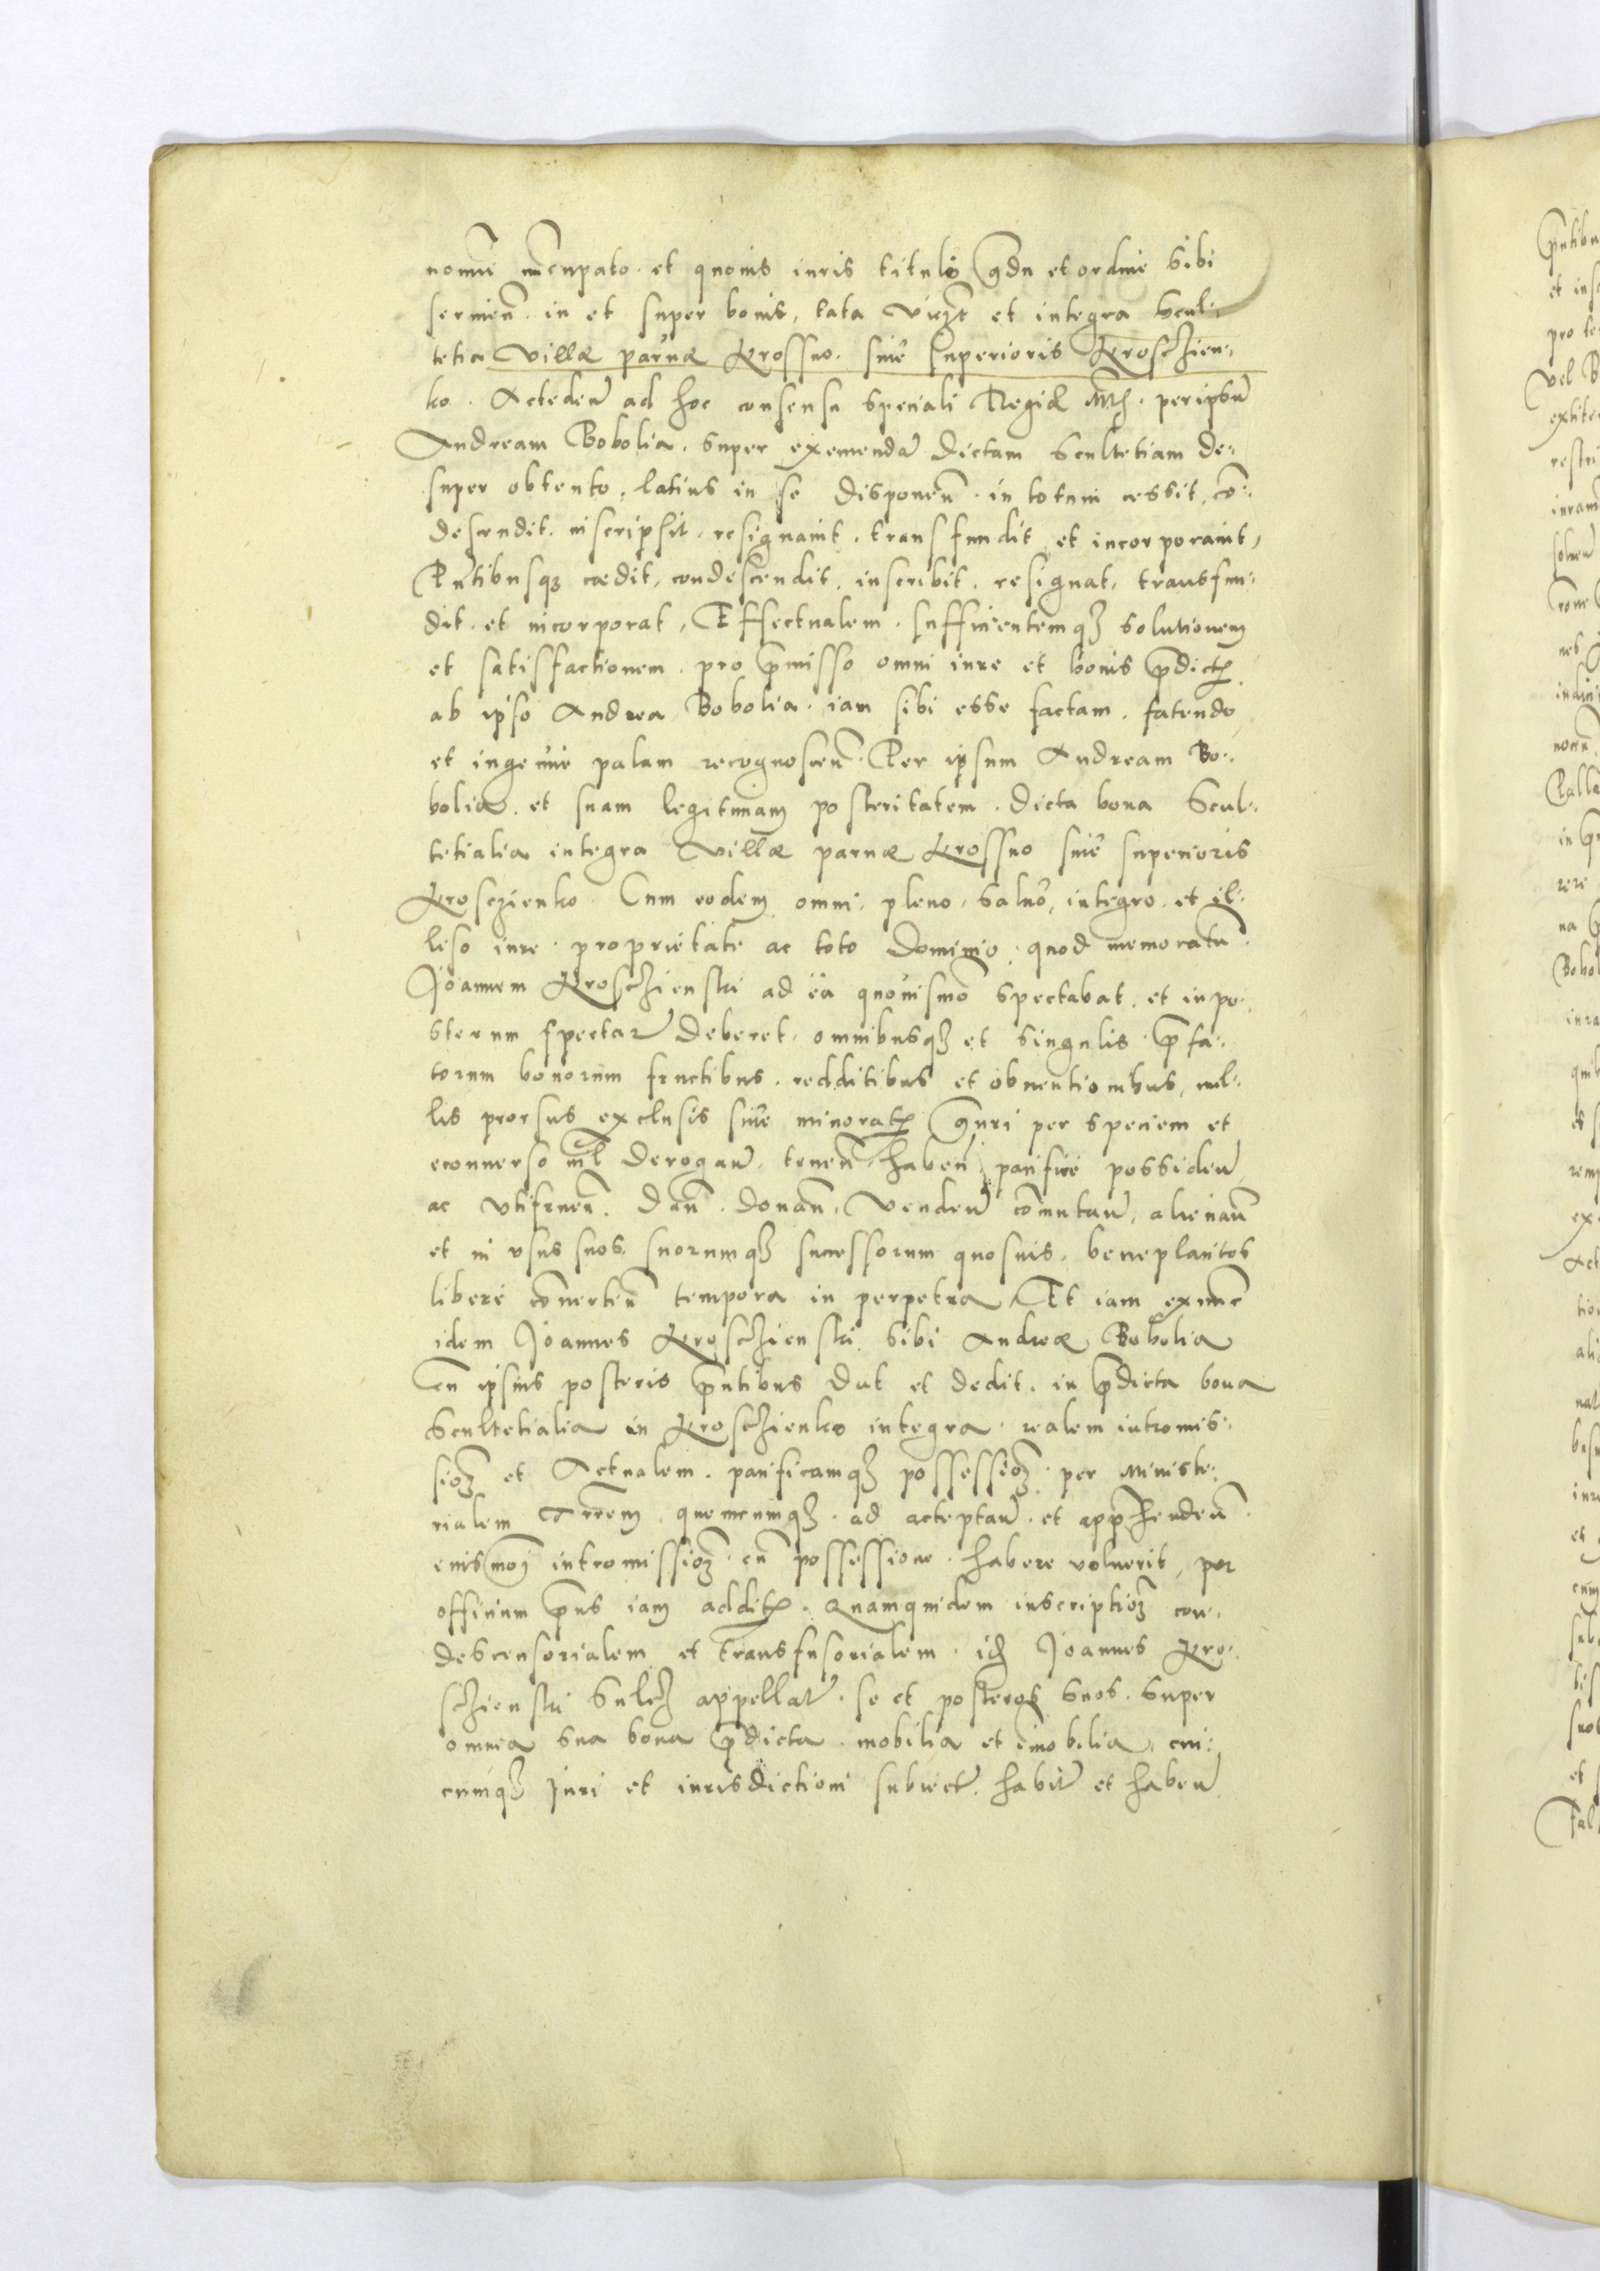 nomie nuncupato et quovis iuris titulo gradu et ordine sibi
servien in et super bonis, tota videlicet et integra Scul¬
tetia Villæ parvæ Krossno sive superioris Kroschien¬
ko. Acceden ad hoc consensu speciali Regiæ Mtis per ipsum
Andream Bobolia super exemendam dictam Scultetiam de¬
super obtento, latius in se disponen in totum cessit, con¬
descendit, inscripsit, resignavit, transfundit et incorporavit,
Pntibusq cædit, condescendit, inscribit, resignat, transfun¬
dit et incorporat, Effectualem sufficientemq solutionem
et satisfactionem pro pmisso omni iure et bonis pdictis
ab ipso Andrea Bobolia iam sibi esse factam, fatendo
et ingenue palam recognoscen. Per ipsum Andream Bo¬
bolia et suam legitimam posteritatem dicta bona Scul¬
tetialia integra Villæ parvæ Krossno sive superioris
Krosczienko Cum eodem omni pleno salvo, integro et il¬
leso iure proprietate ac toto dominio quod memoratum
Joannem Kroschienski ad ea quovismo spectabat et inpo¬
sterum spectar deberet omnibusq et singulis pfa¬
torum bonorum fructibus redditibus et obventionibus, nul¬
lis prorsus exclusis sive minoratis gnri per speciem et
econverso nil derogan tenen haben pacifice possiden
ac utifruen Dan donan, Venden comutan, alienan
et in usus suos suorumq successorum quosvis beneplacitos
libere converten tempora in perpetua, Et iam exnunc
idem Joannes Kroschienski sibi Andreæ Bobolia
cum ipsius posteris pntibus dat et dedit in pdicta bona
Scultetialia in Kroschienko integra realem intromis¬
sionem et Actualem pacificamq possessionem per Ministe¬
rialem Trrem quemcumq ad acceptan et apprhenden
euismoi intromissionem cum possessione habere voluerit, per
officium pns iam additum Quamquidem inscriptionem con¬
descensorialem et transfusorialem id Joannes Kro¬
schienski Sulcz appellat se et posteros suos super
omnia sua bona pdicta mobilia et imobilia, cui¬
cumq Juri et iurisdictioni subiect habit et haben